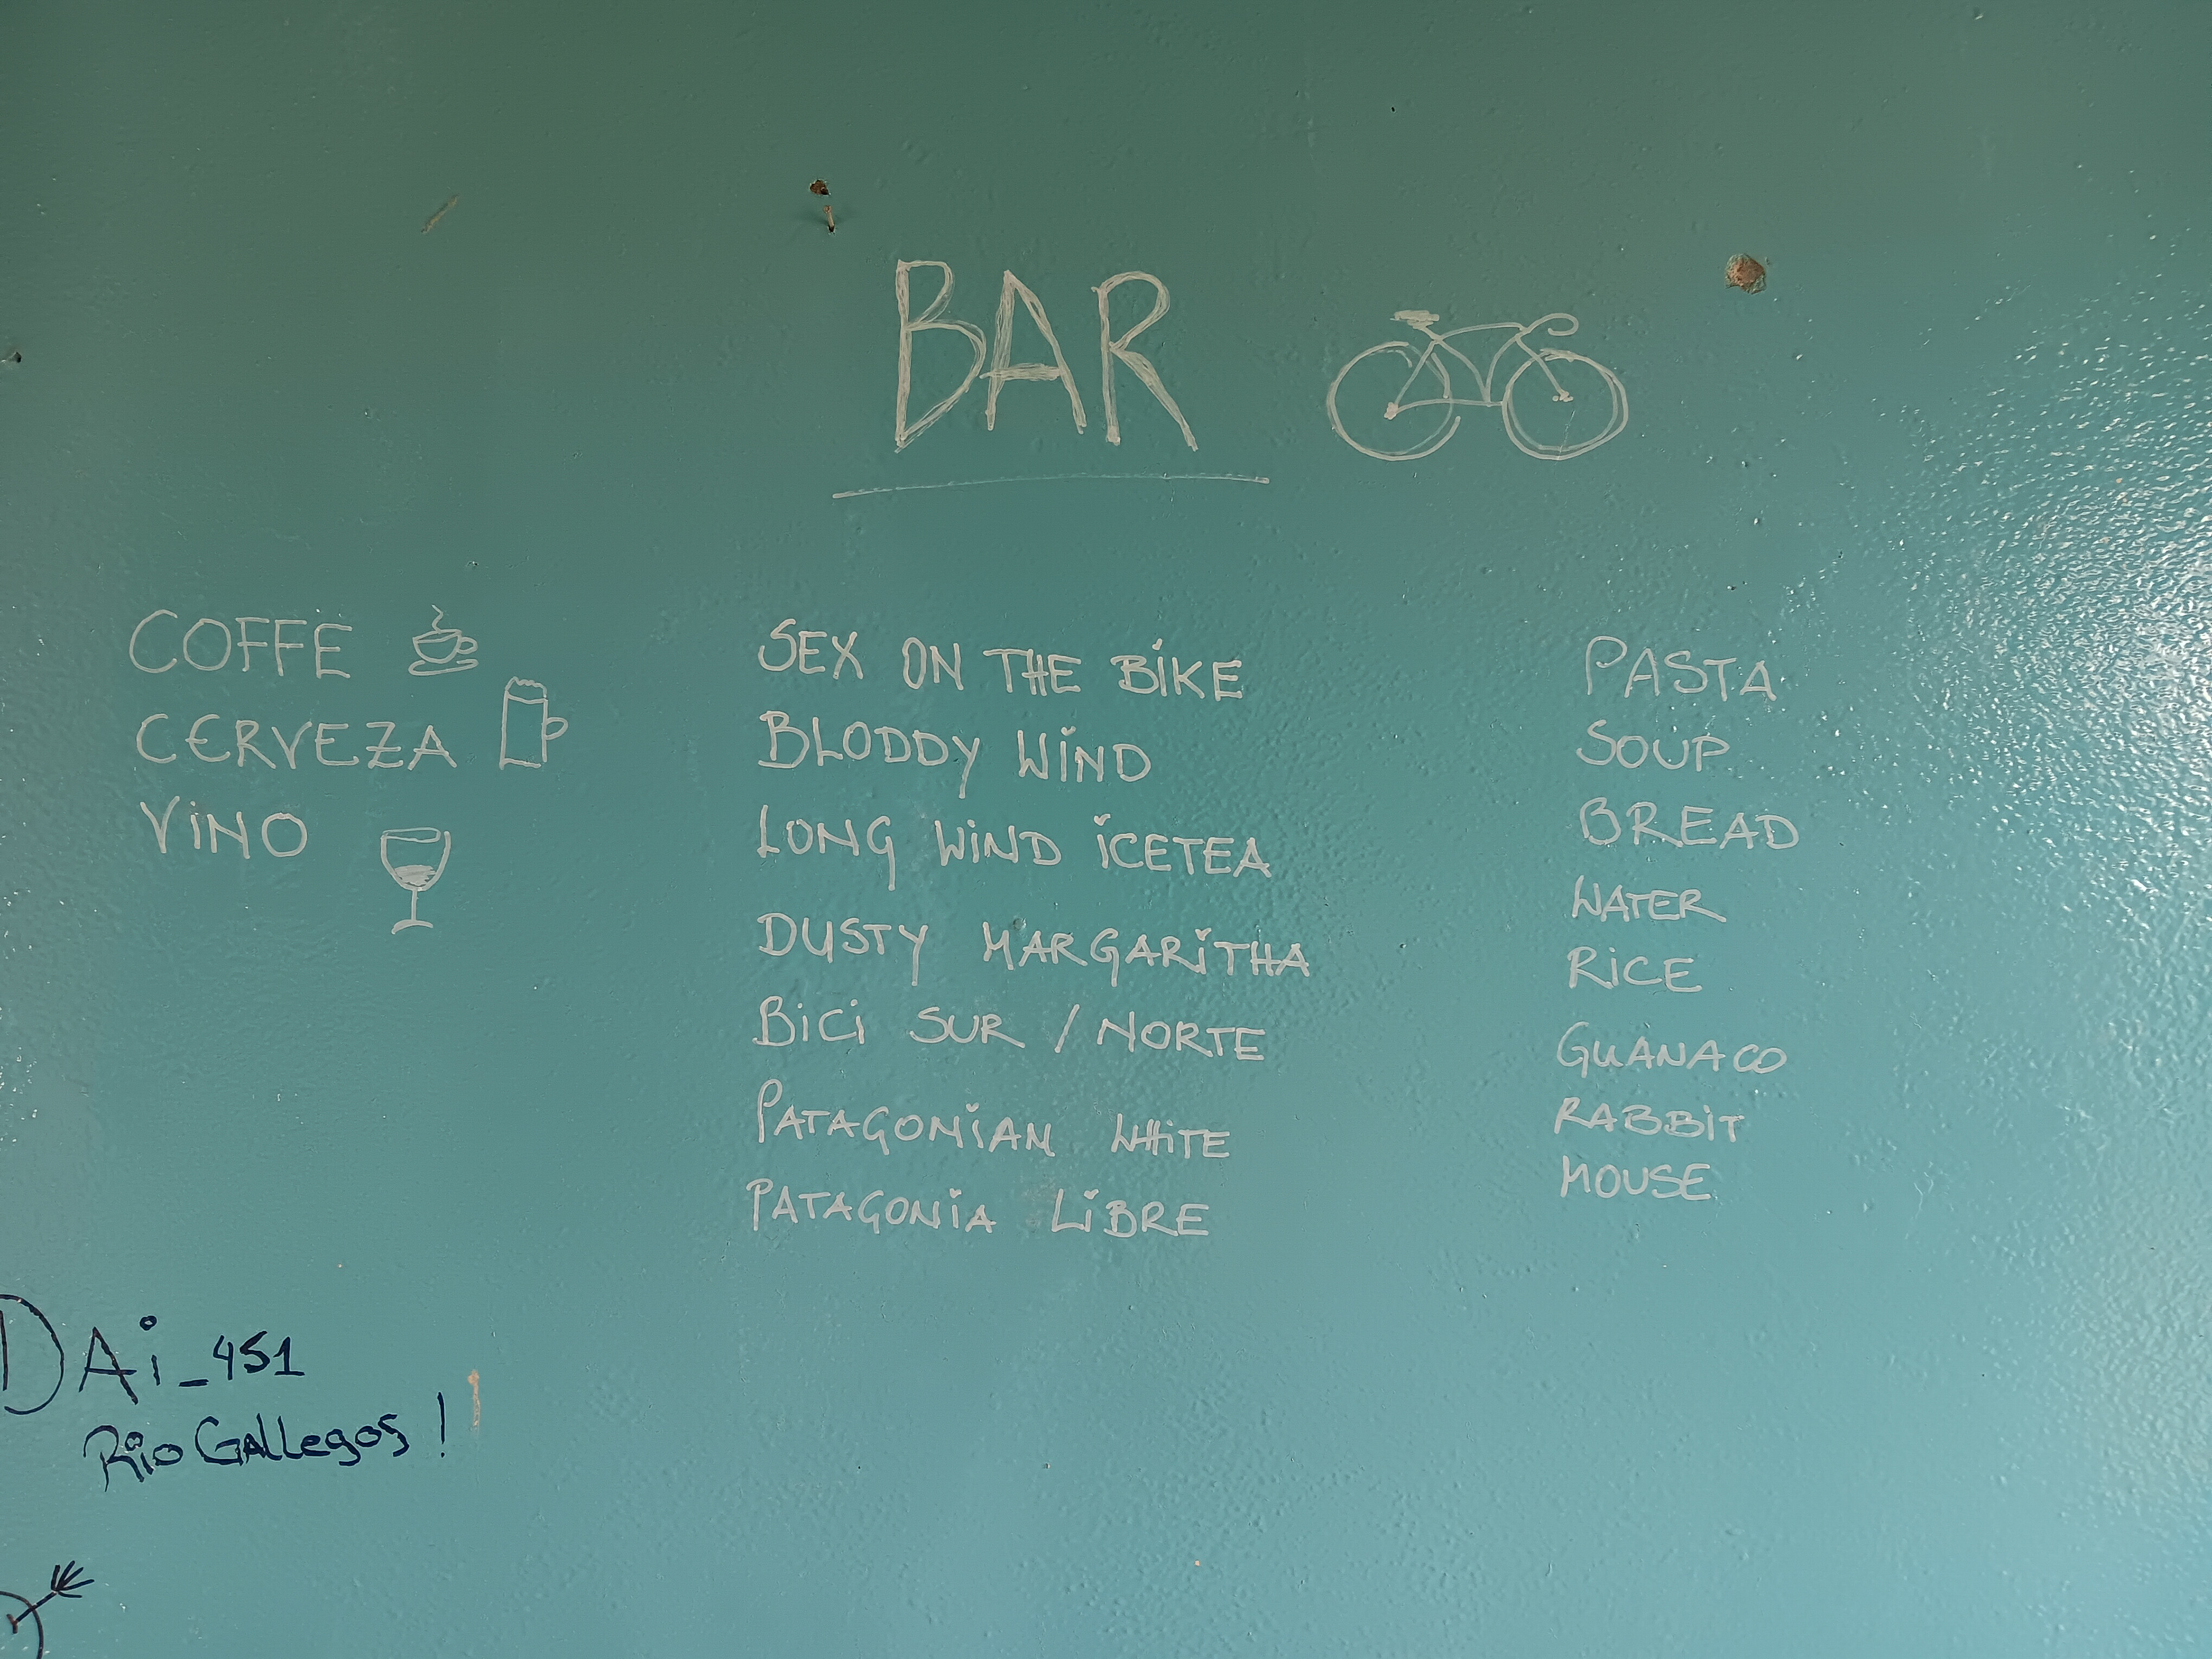 BAR
COFFE
CERVEZA
ViNO
SEX ON THE BiKE
BLODDY WiND
LONG WiND iCETEA
DUSTY MARGARiTHA
BiCi SUR / NORTE
PATAGONiAN WHiTE
PATAGONiA LiBRE
PASTA
SOUP
BREAD
WATER
RiCE
GUANACO
RABBiT
MOUSE
DAi_451
Rio Gallegos!